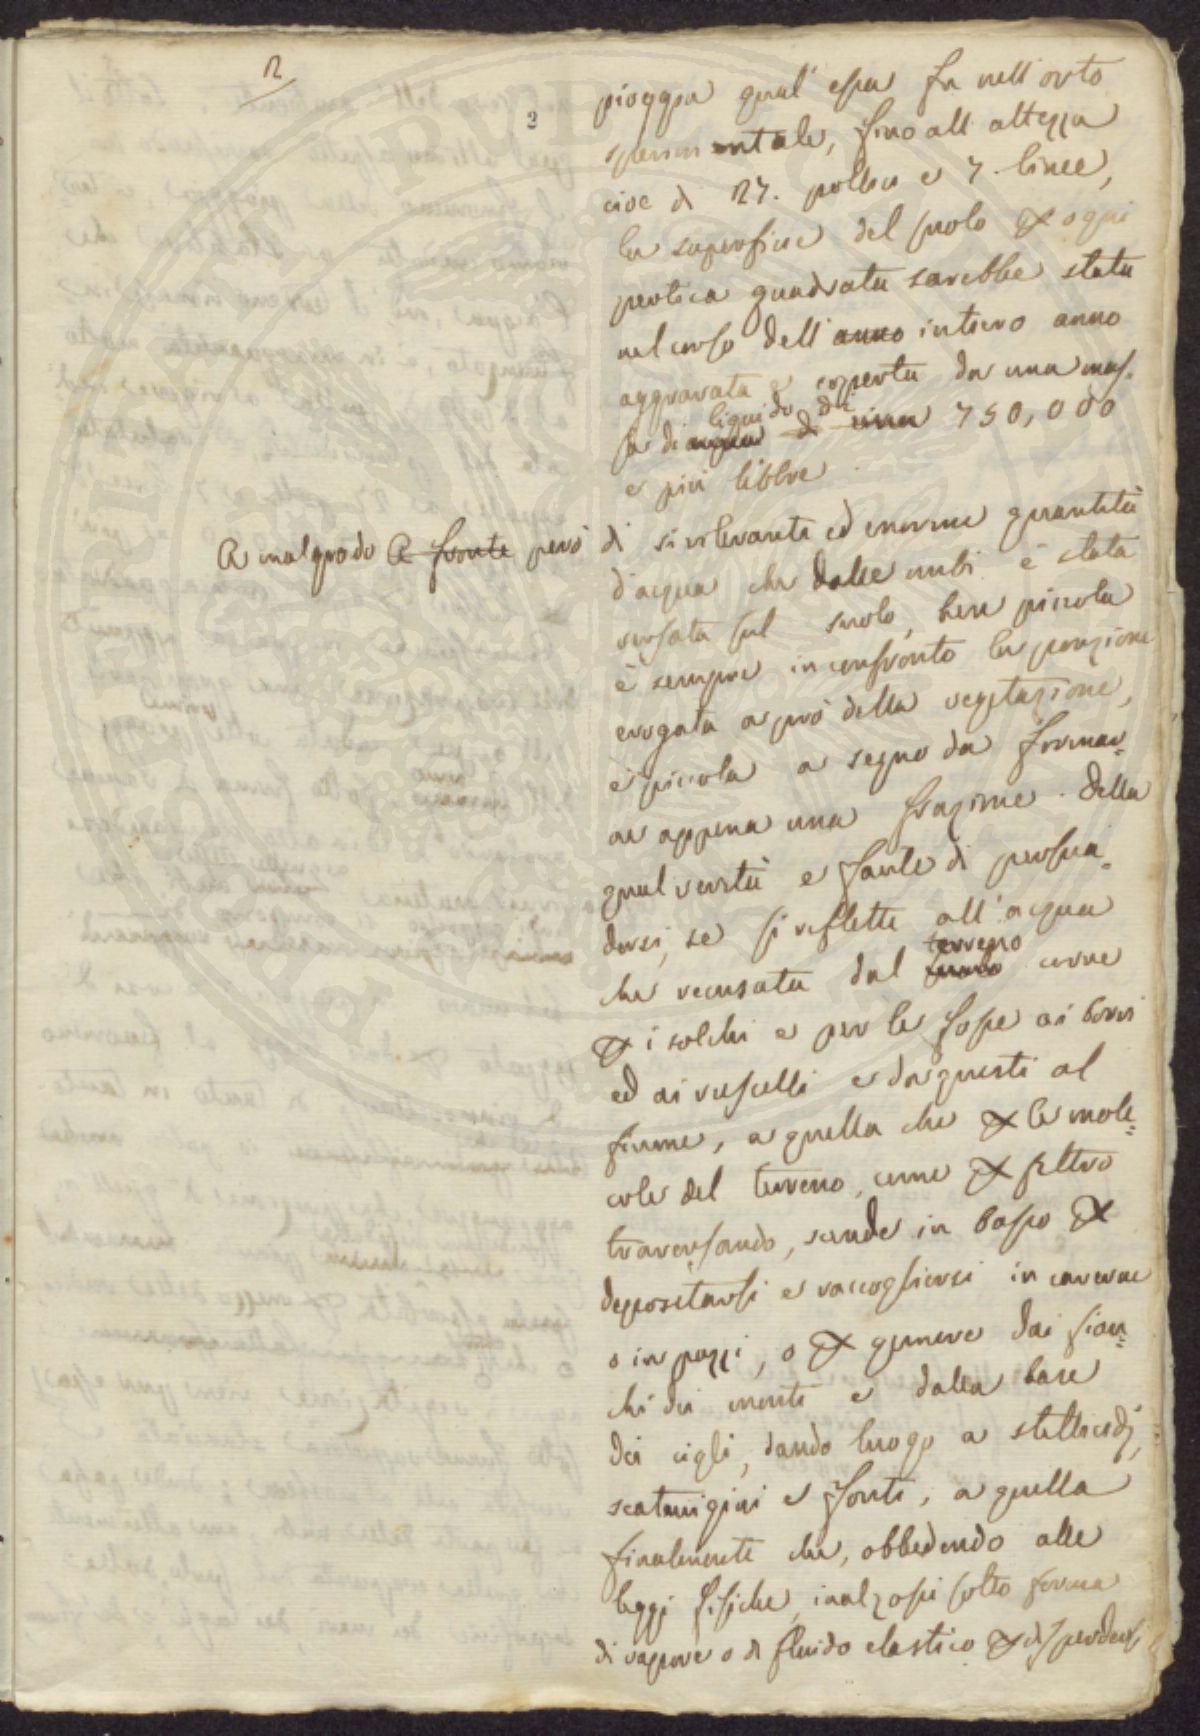 2
2
pioggia qual' essa fu nell' orto
sperimentale, sino all altezza
cioè di 27. pollici e 7. linee,
la superficie del suolo per ogni
pertica quadrata sarebbe stata
nel corso dell' anno intiero anno
aggravata e coperta da una mas-
liquido di
sa di acqua di una 750,000
e più libbre.
A malgrado A fronte però di sì rilevante ed enorme quantità
d'acqua che dalle nubi è stata
versata sul suolo, ben piccola
è sempre in confronto la porzione
erogata a prò della vegetazione,
e piccola a segno da forma-
re appena una frazione. Della
qual verità è facile di persua-
dersi, se si reflette all' acqua
terreno
che recusata dal suolo corre
per i solchi e per le fosse ai borri
ed ai ruscelli e da questi al
fiume, a quella che per le mole-
cole del terreno, come per filtro
traversando, scende in basso per
depositarsi e raccogliersi in caverne
o in pozzi, o per gemere dai fian-
chi dei monti e dalla base
dei cigli, dando luogo a stillicidj,
scaturigini e fonti, a quella
finalmente che, obbedendo alle
leggi fisiche, inalzasi sotto forma
di vapore o di fluido elastico per disperdersi